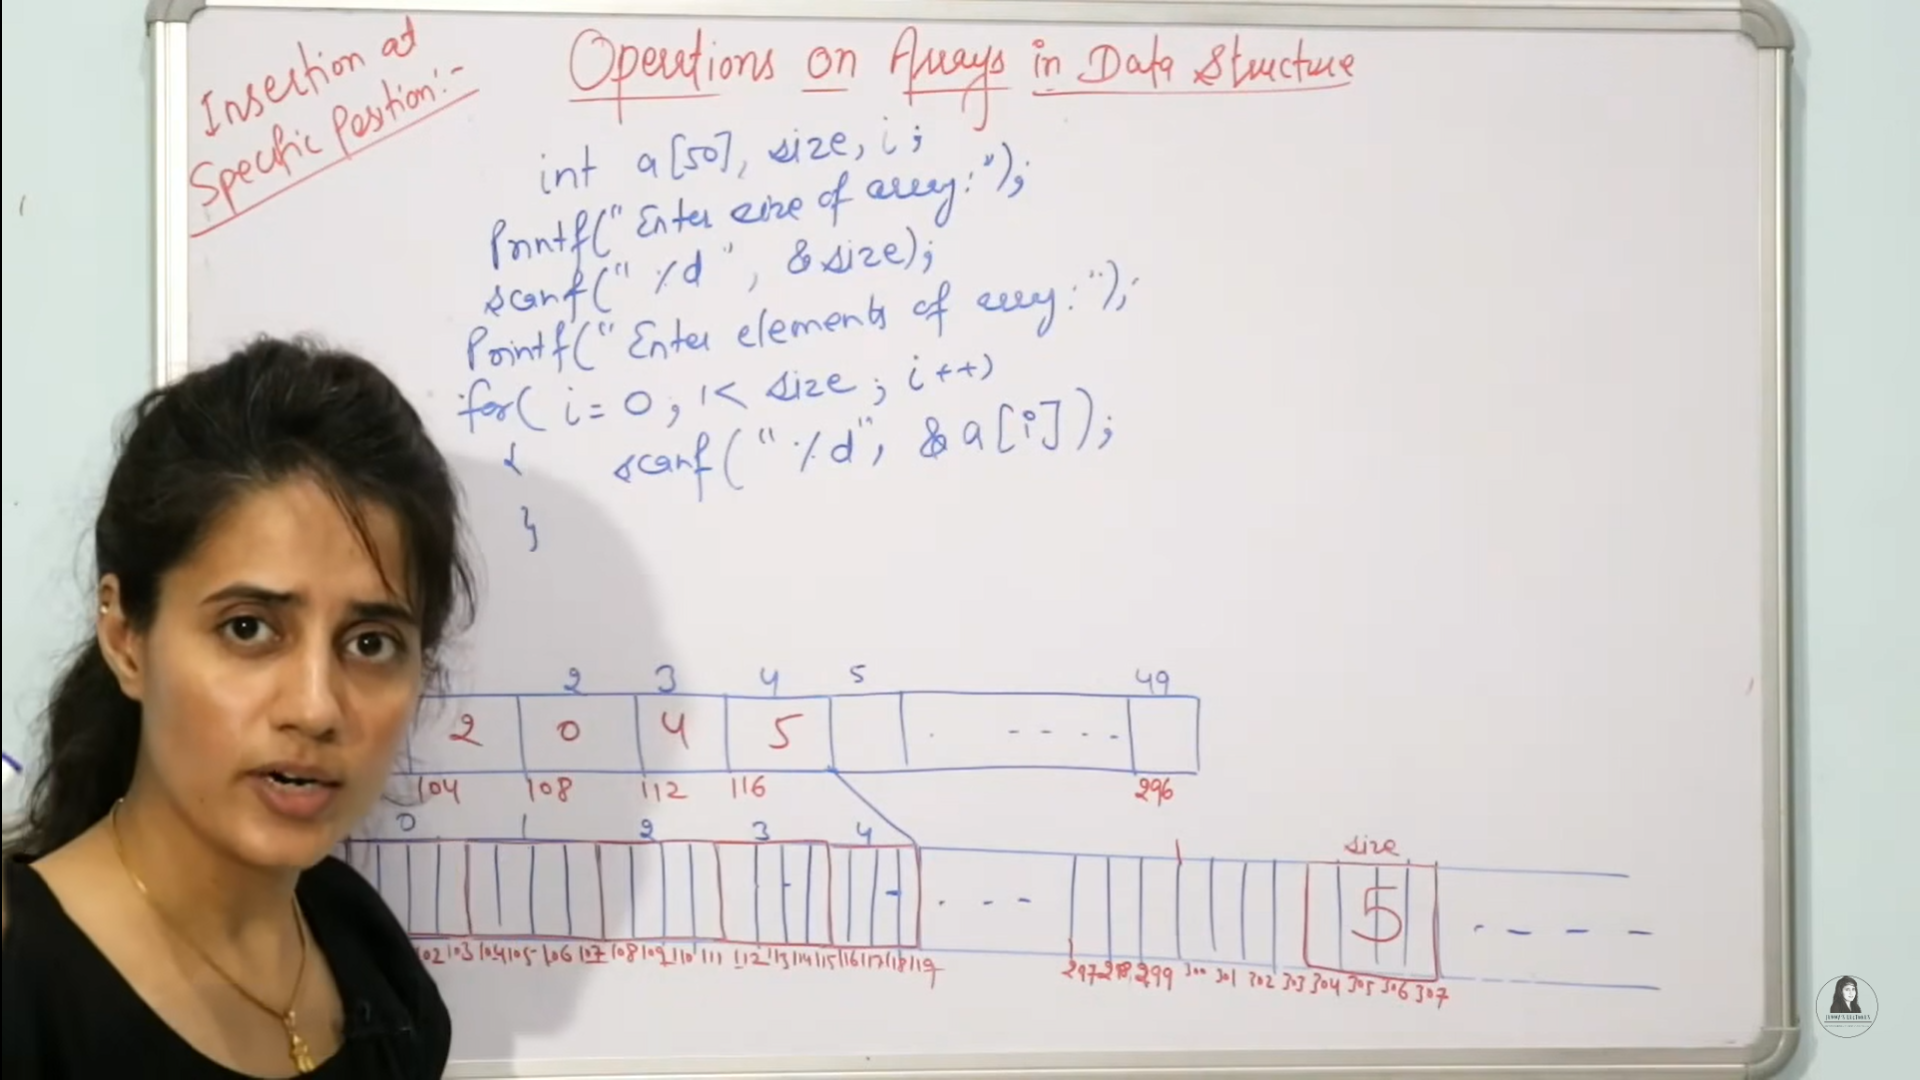 Insertion at
Specific Position:-
Operations on Arrays in Data Structure
int a[50], size, i;
Printf("Enter size of array:");
scanf("%d", &size);
Printf("Enter elements of array:");
for( i=0; i< size; i++)
{ scanf("%d", &a[i]);
}
2 3 4 5 49
2 0 4 5 . - - - -
104 108 112 116 296
0 1 2 3 4 size
. - - - 5 - - - -
102 103 104 105 106 107 108 109 110 111 112 113 114 115 116 117 118 119 297 298 299 300 301 302 303 304 305 306 307
JENNY'S LECTURES